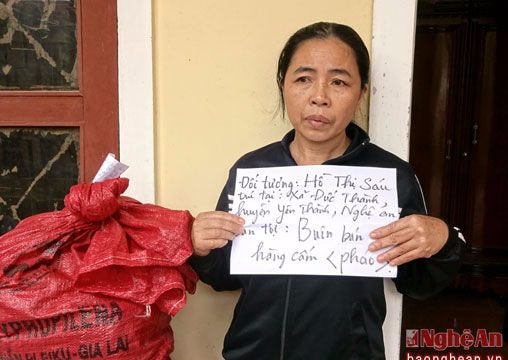 Đối tượng: Hồ Thị Sáu
trú tại: Xã Đức Thành,
huyện Yên Thành, Nghệ An
Can tội: Buôn bán
hàng cấm <pháo>.
PROPILENA
PLEIKU-GIA LAI
NghệAn
baonghean.vn